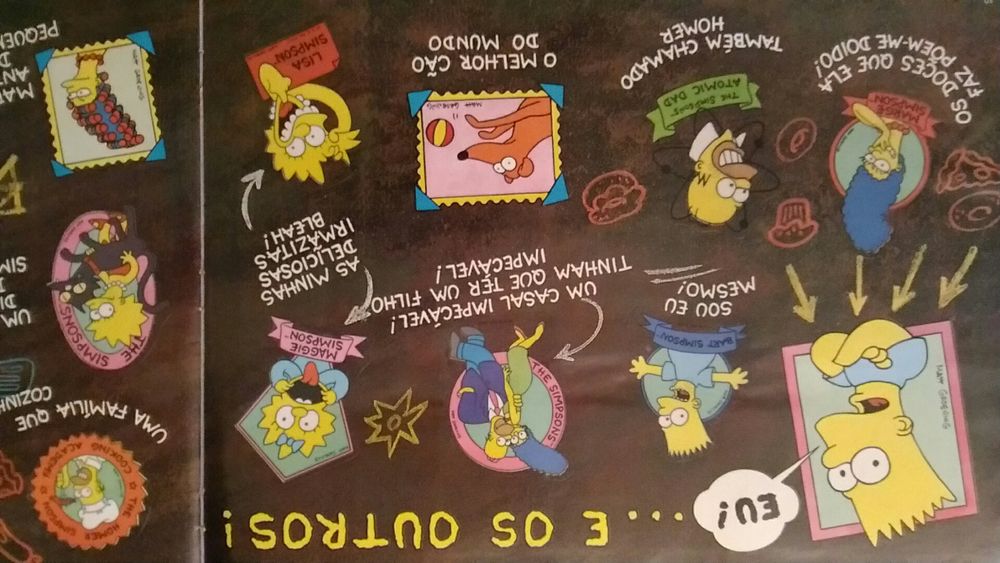 EU!
...E OS OUTROS!
MATT GROENING
SOU EU
MESMO!
BART SIMPSON
UM CASAL IMPECÁVEL!
TINHAM QUE TER UM FILHO
IMPECÁVEL!
THE SIMPSONS
AS MINHAS
DELICIOSAS
IRMÃZITAS
BLEAH!
MAGGIE
SIMPSON
MATT GROENING
OS DOCES QUE ELA
FAZ PÕEM-ME DOIDO!
MARGE
SIMPSON
TAMBÉM CHAMADO
HOMER
THE SIMPSONS'
ATOMIC DAD
O MELHOR CÃO
DO MUNDO
MATT GROENING
LISA
SIMPSON
UMA FAMÍLIA QUE
COZINH
THE HOMER SIMPSON
COOKING ACADEMY
UM
DI
SIM
THE SIMPSONS
MAT
AN
D
PEQUEN
MATT GROENING